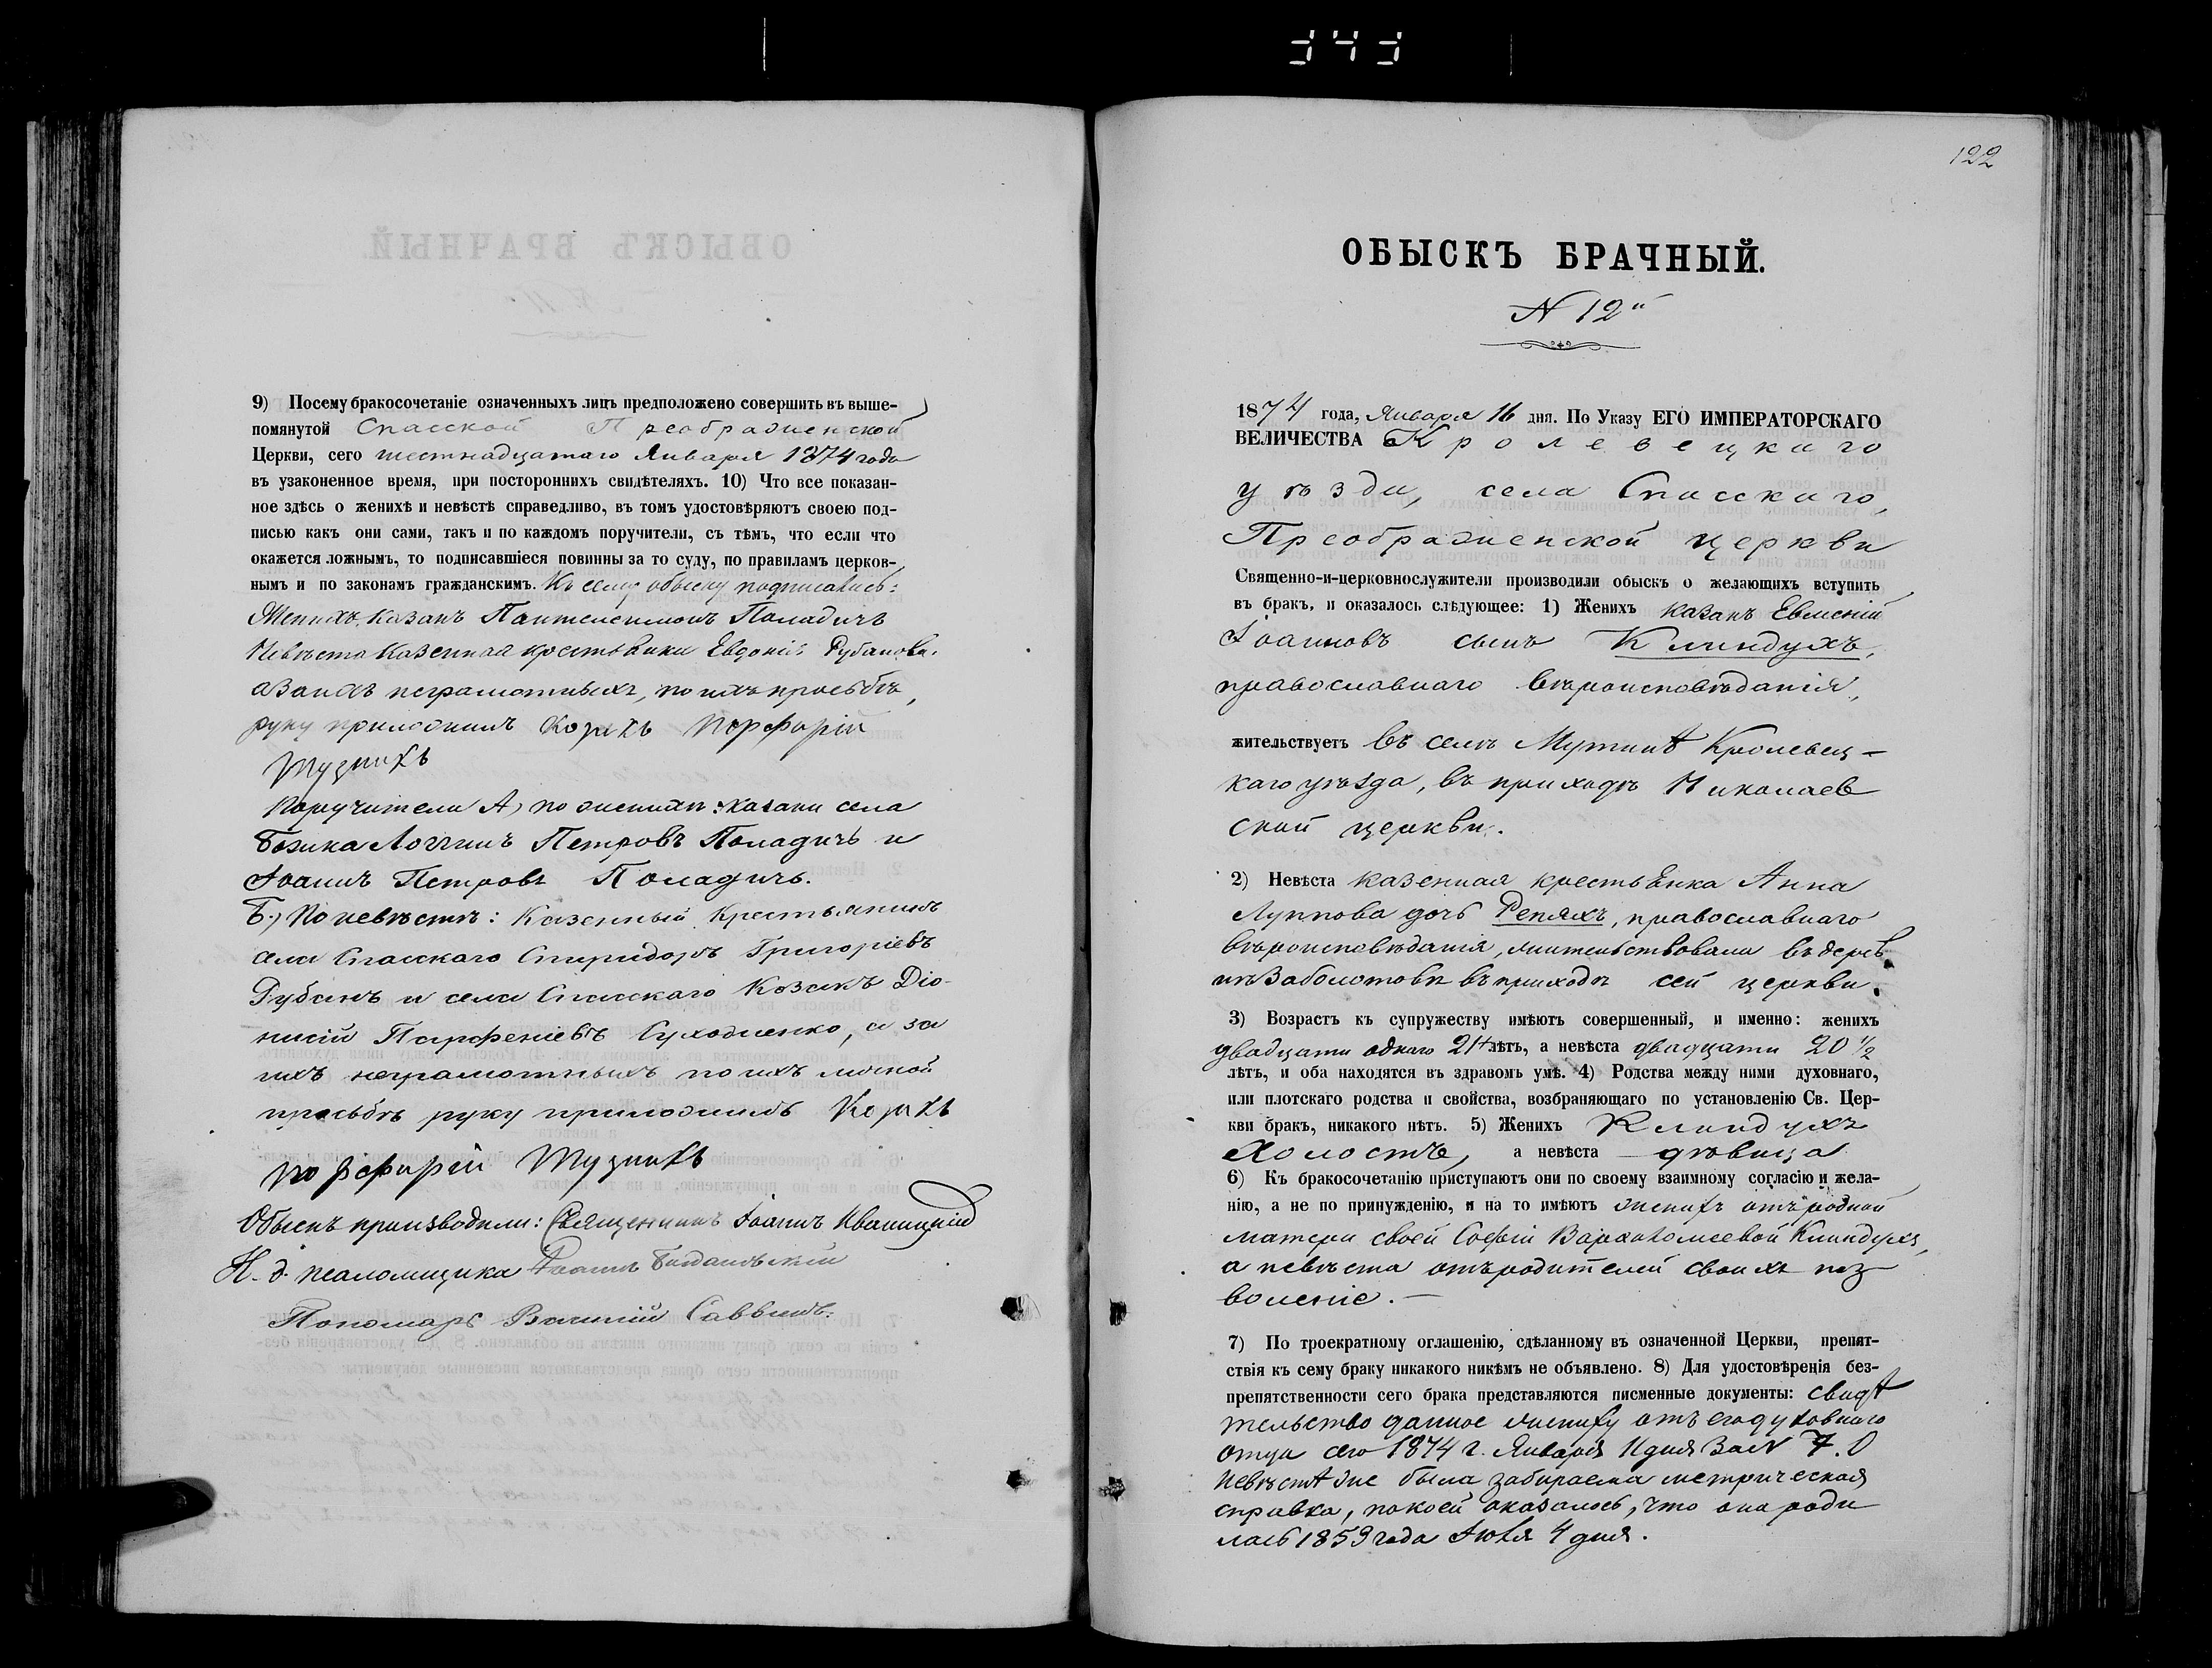 343
9) Посему бракосочетаніе означенныхъ лицъ предположено совершить въ выше-
помянутой Спасской Преображенской
Церкви, сего шестнадцатаго Января 1874 года
въ узаконенное время, при постороннихъ свидѣтеляхъ. 10) Что все показан-
ное здѣсь о женихѣ и невѣстѣ справедливо, въ томъ удостовѣряютъ своею под-
писью какъ они сами, такъ и по каждомъ поручители, съ тѣмъ, что если что
окажется ложнымъ, то подписавшіеся повинны за то суду, по правиламъ церков-
нымъ и по законамъ гражданскимъ. Къ сему обыску подписались:
Женихъ казакъ Пантелеимонъ Поладичъ
Невѣста казенная крестьянка Евдокія Рубанова.
а за ихъ неграмотныхъ, по ихъ просьбѣ,
руку приложилъ Козакъ Порфирій
Тузникъ
Поручители А) по женихѣ: казаки села
Божка Логгинъ Петровъ Поладичъ и
Іоаннъ Петровъ Поладичъ.
Б.) По невѣстѣ: Казенный Крестьянинъ
села Спасскаго Спиридонъ Григоріевъ
Рубанъ и села Спасскаго Козакъ Діо-
нисій Парфеніевъ Суходленко, а за
ихъ неграмотныхъ по ихъ личной
просьбѣ руку приложилъ Козакъ
Порфирій Тузникъ
Обыскъ производили: Священникъ Іоаннъ Иваницкій
И. д. псаломщика Іоаннъ
Пономарь Саввинъ.
122
ОБЫСКЪ БРАЧНЫЙ.
N 12й
1874 года, Января 16 дня. По Указу ЕГО ИМПЕРАТОРСКАГО
ВЕЛИЧЕСТВА Кролевецкаго
уѣзда, села Спасскаго,
Преображенской церкви
Священно-и-церковнослужители производили обыскъ о желающихъ вступить
въ бракъ, и оказалось слѣдующее: 1) Женихъ казакъ Евменій
Іоанновъ сынъ Клиндухъ,
православнаго вѣроисповѣданія,
жительствуетъ въ селѣ Мутинѣ Кролевец-
каго уѣзда, въ приходѣ Николаев
ской церкви.
2) Невѣста казенная крестьянка Анна
Луппова дочь Репяхъ, православнаго
вѣроисповѣданія, жительствовала въ дерев
нѣ Заболотовѣ въ приходѣ сей церкви.
3) Возрастъ къ супружеству имѣютъ совершенный, и именно: женихъ
двадцати одного 21 лѣтъ, а невѣста двадцати 20 1/2
лѣтъ, и оба находятся въ здравомъ умѣ. 4) Родства между ними духовнаго,
или плотскаго родства и свойства, возбраняющаго по установленію Св. Цер-
кви бракъ, никакого нѣтъ. 5) Женихъ Клиндухъ
Холостъ, а невѣста дѣвица
6) Къ бракосочетанію приступаютъ они по своему взаимному согласію и жела-
нію, а не по принужденію, и на то имѣютъ женихъ отъ родной
матери своей Софіи Варѳоломеевой Клиндухъ,
а невѣста отъ родителей своихъ поз
воленіе.
7) По троекратному оглашенію, сдѣланному въ означенной Церкви, препят-
ствія къ сему браку никакого никѣмъ не объявлено. 8) Для удостовѣренія без-
препятственности сего брака представляются писменные документы: свидѣ
тельство данное жениху отъ его духовнаго
отца сего 1874 г. Января 11 дня за N 7. О
невѣстѣ же была забираема метрическая
справка, по коей оказалось, что она роди
лась 1853 года Іюля 4 дня.